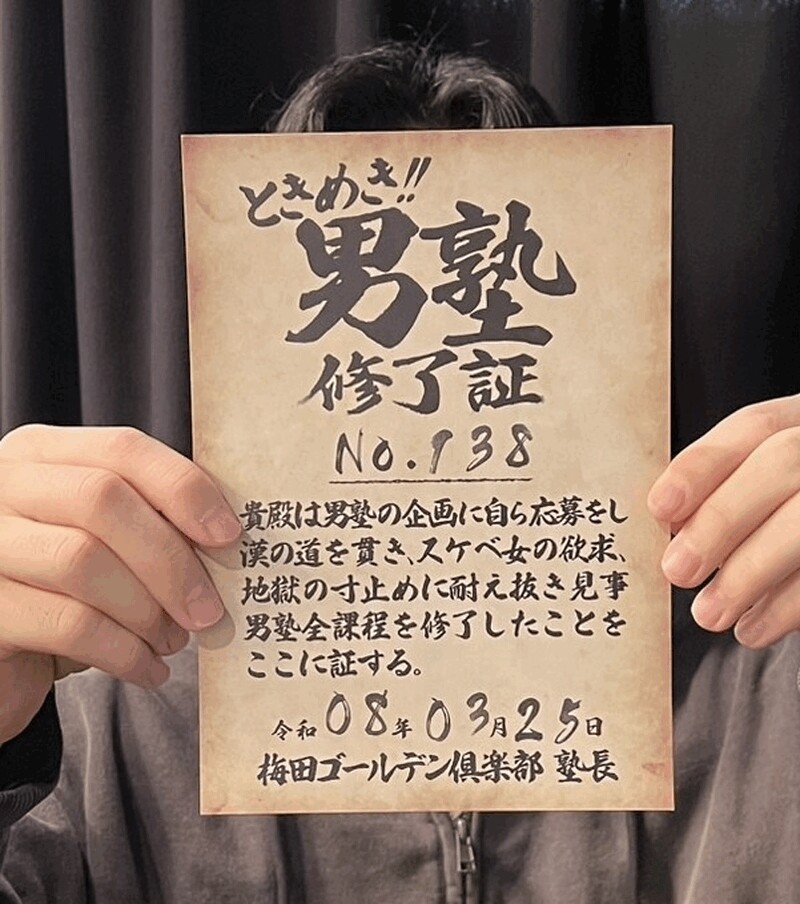 ときめき!!
男塾
修了証
No.938
貴殿は男塾の企画に自ら応募をし
漢の道を貫き、スケベ女の欲求、
地獄の寸止めに耐え抜き見事
男塾全課程を修了したことを
ここに証する。
令和08年03月25日
梅田ゴールデン倶楽部 塾長